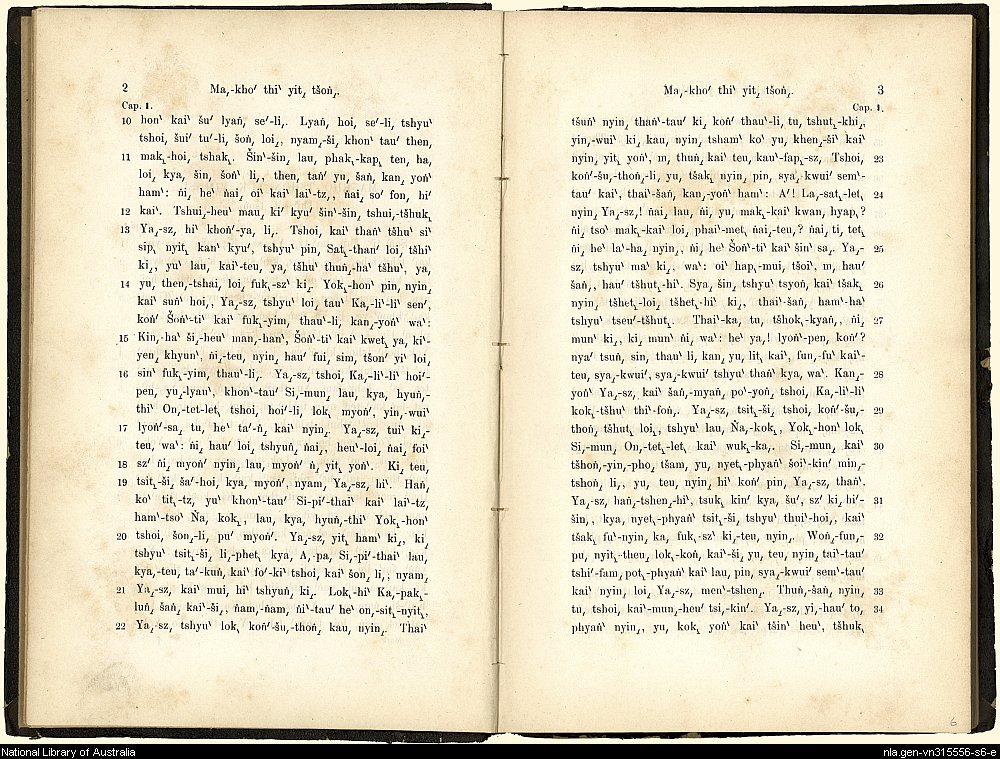 2 Ma͵-kho′ thi‵ yit͵ tšoṅ͵.
Cap. 1.
10 hon‵ kai‵ šu′ lyaṅ, se′-li͵. Lyaṅ, hoi, se′-li, tshyu‵
tshoi, šui′ tu′-li, šoṅ, loi͵, nyam͵-ši, khon‵ tau′ then,
11 mak˛-hoi, tshak˛. Šin‵-šin͵ lau, phak˛-kap˛ ten, ha,
loi, kya, šin, šoṅ‵ li͵, then, taṅ′ yu, šaṅ, kan, yoṅ‵
ham‵: ṅi, he‵ ṅai, oi‵ kai‵ lai‵-tz͵, ṅai, so′ fon, hi′
12 kai‵. Tshui͵-heu‵ mau, ki′ kyu′ šin‵-šin͵ tshui-tšhuk˛
13 Ya͵-sz, hi‵ khoṅ′-ya, li͵. Tshoi, kai‵ thaṅ‵ tšhu‵ si‵
sip˛ nyit˛ kan‵ kyu′, tshyu‵ pin, Sat˛-than′ loi, tšhi‵
ki͵, yu‵ lau, kai‵-teu, ya, tšhu‵ thuṅ͵-ha‵ tšhu‵, ya,
14 yu, then͵-tshai, loi͵ fuk˛-sz‵ ki͵. Yok˛-hon‵ pin, nyin͵
kai‵ suṅ‵ hoi͵, Ya͵-sz, tshyu‵ loi, tau‵ Ka͵-li‵-li‵ sen′,
koṅ′ Šoṅ‵-ti‵ kai‵ fuk˛-yim, thau‵-li, kan͵-yoṅ‵ wa‵:
15 Kin͵-ha‵ ši͵-heu‵ man͵-han‵, Šoṅ‵-ti‵ kai‵ kwet˛ ya, ki‵-
yen͵ khyun‵, ṅi͵-teu, nyin͵ hau′ fui, sim, tšon′ yi‵ loi,
16 sin′ fuk˛-yim, thau‵-li͵. Ya͵-sz, tshoi, Ka͵-li‵-li‵ hoi′-
pen, yu͵-lyau‵, khon‵-tau′ Si͵-mun͵ lau, kya, hyuṅ͵-
thi‵ On͵-tet-let˛ tshoi, hoi′-li, lok˛ myoṅ′, yin͵-wui‵
17 lyoṅ′-sa͵ tu, he‵ ta′-ṅ͵ kai‵ nyin͵. Ya͵-sz, tui‵ ki͵-
teu, wa‵: ṅi, hau′ loi͵ tshyuṅ͵ ṅai͵, heu‵-loi, ṅai, foi‵
18 sz′ ṅi, myoṅ′ nyin͵ lau, myoṅ′ ṅ͵ yit˛ yoṅ‵. Ki͵ teu,
19 tsit˛-ši͵ ša′-hoi, kya, myoṅ′, nyam, Ya͵-sz, hi‵. Haṅ,
ko‵ tit˛-tz, yu‵ khon‵-tau′ Si-pi′-thai‵ kai‵ lai‵-tz,
ham‵-tso‵ Ña, kok˛, lau, kya, hyuṅ͵-thi‵ Yok˛-hon‵
20 tshoi, šon͵-li, pu′ myoṅ′. Ya͵-sz, yit˛ ham‵ ki͵, ki͵
tshyu‵ tsit˛-ši͵ li͵-phet˛ kya, A͵-pa, Si͵-pi′-thai‵ lau,
kya͵-teu, ta′-kuṅ, kai‵ fo′-ki‵ tshoi, kai‵ šon͵ li͵, nyam͵
21 Ya͵-sz, kai‵ mui, hi‵ tshyuṅ, ki͵. Lok˛-hi‵ Ka͵-pak˛-
luṅ, šaṅ͵ kai‵-ši͵, ṅam͵-ṅam, ṅi‵-tau′ he‵ on͵-sit˛-nyit˛,
22 Ya͵-sz, tshyu‵ lok˛ koṅ′-šu͵-thoṅ͵ kau, nyin͵. Thai‵
Ma͵-kho′ thi‵ yit͵ tšoṅ͵. 3
Cap. 1.
tšuṅ‵ nyin͵ thaṅ‵-tau′ ki͵ koṅ′ thau‵-li, tu, tshut˛-khi͵,
yin͵-wui‵ ki͵ kau, nyin͵ tsham‵ ko‵ yu, khen͵-ši‵ kai‵
nyin͵ yit˛ yoṅ‵, m, thuṅ͵ kai‵ teu, kau‵-fap˛-sz, Tshoi, 23
koṅ′-šu͵-thoṅ͵-li, yu, tšak˛ nyin͵ pin, sya͵-kwui′ sem‵-
tau‵ kai‵, thai‵-šaṅ, kan͵-yoṅ‵ ham‵: A′! La͵-sat˛-let˛ 24
nyin͵ Ya͵-sz͵! ṅai, lau, ṅi, yu, mak˛-kai‵ kwan, hyap˛?
ṅi, tso‵ mak˛-kai‵ loi, phai‵-met˛ ṅai͵-teu͵? ṅai, ti, tet˛
ṅi, he‵ la‵-ha, nyin͵, ṅi, he‵ Šoṅ‵-ti‵ kai‵ šin‵ sa͵. Ya͵- 25
sz, tshyu‵ ma‵ ki͵, wa‵: oi‵ hap˛-mui, tšoi‵, m, hau′
šaṅ͵, hau′ tšhut˛-hi‵. Sya͵ šin͵ tshyu‵ tsyoṅ, kai‵ tšak˛ 26
nyin, tšhet˛-loi, tšhet˛-hi‵ ki͵, thai‵-šaṅ, ham‵-ha‵
tshyu‵ tseu′-tšhut˛. Thai‵-ka, tu, tšhok˛-kyaṅ͵, ṅi͵ 27
mun‵ ki͵, ki, mun‵ ṅi, wa‵: he‵ ya͵! lyoṅ‵-pen, koṅ′?
nya′ tsuṅ, sin, thau‵ li, kan͵ yu, lit˛ kai‵, fun͵-fu‵ kai‵-
teu, sya͵-kwui′, sya͵-kwui′ tshyu‵ thaṅ‵ kya, wa‵. Kan͵- 28
yoṅ‵ Ya͵-sz, kai‵ šaṅ͵-myaṅ͵ po‵-yoṅ′ tshoi, Ka͵-li‵-li‵
kok˛-tšhu‵ thi‵-foṅ͵. Ya͵-sz, tsit˛-ši͵ tshoi, koṅ′-šu͵- 29
thoṅ͵ tšhut˛ loi͵, tshyu‵ lau, Ña͵-kok˛, Yok˛-hon‵ lok˛
Si͵-mun͵ On͵-tet˛-let˛ kai‵ wuk˛-ka͵. Si͵-mun͵ kai‵ 30
tšhoṅ͵-yin͵-pho͵ tšam, yu, nyet˛-phyaṅ‵ šoi‵-kin′ min͵-
tshoṅ͵ li͵, yu, teu, nyin͵ hi‵ koṅ′ pin, Ya͵-sz, thaṅ‵.
Ya͵-sz, haṅ͵-tshen͵-hi‵, tsuk˛ kin′ kya, šu′, sz′ ki͵ hi′- 31
šin͵, kya, nyet˛-phyaṅ‵ tsit˛-ši͵ tshyu‵ thui‵-hoi͵, kai‵
tšak˛ fu‵-nyin͵ ka, fuk˛-sz‵ ki͵-teu, nyin͵. Woṅ͵-fun͵- 32
pu, nyit˛-theu, lok˛-koṅ, kai‵-ši͵ yu, teu, nyin͵ tai‵-tau′
tshi′-fam, pot˛-phyaṅ‵ kai‵ lau, pin, sya͵-kwui′ sem‵-tau′
kai‵ nyin͵ loi͵ Ya͵-sz, men‵-tshen͵. Thuṅ͵-šaṅ, nyin͵ 33
tu, tshoi, kai‵-mun͵-heu′ tsi͵-kin′. Ya͵-sz, yi͵-hau′ to, 34
phyaṅ‵ nyin͵, yu, kok˛ yoṅ‵ kai‵ tšin‵ heu‵, tšhuk˛
6
National Library of Australia
nla.gen-vn315556-s6-e